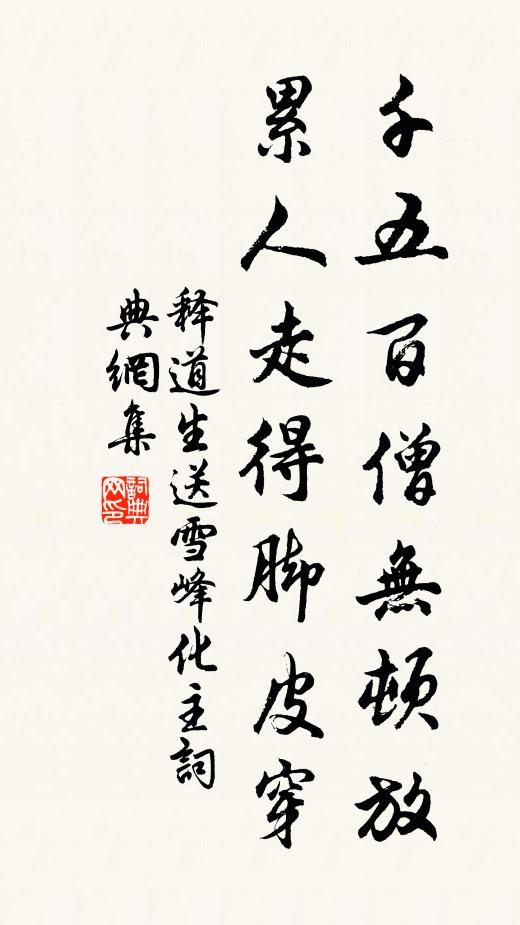 千五百僧無頓放
累人走得脚皮穿
释道生送雪峰化主詞
典網集
詞典网印